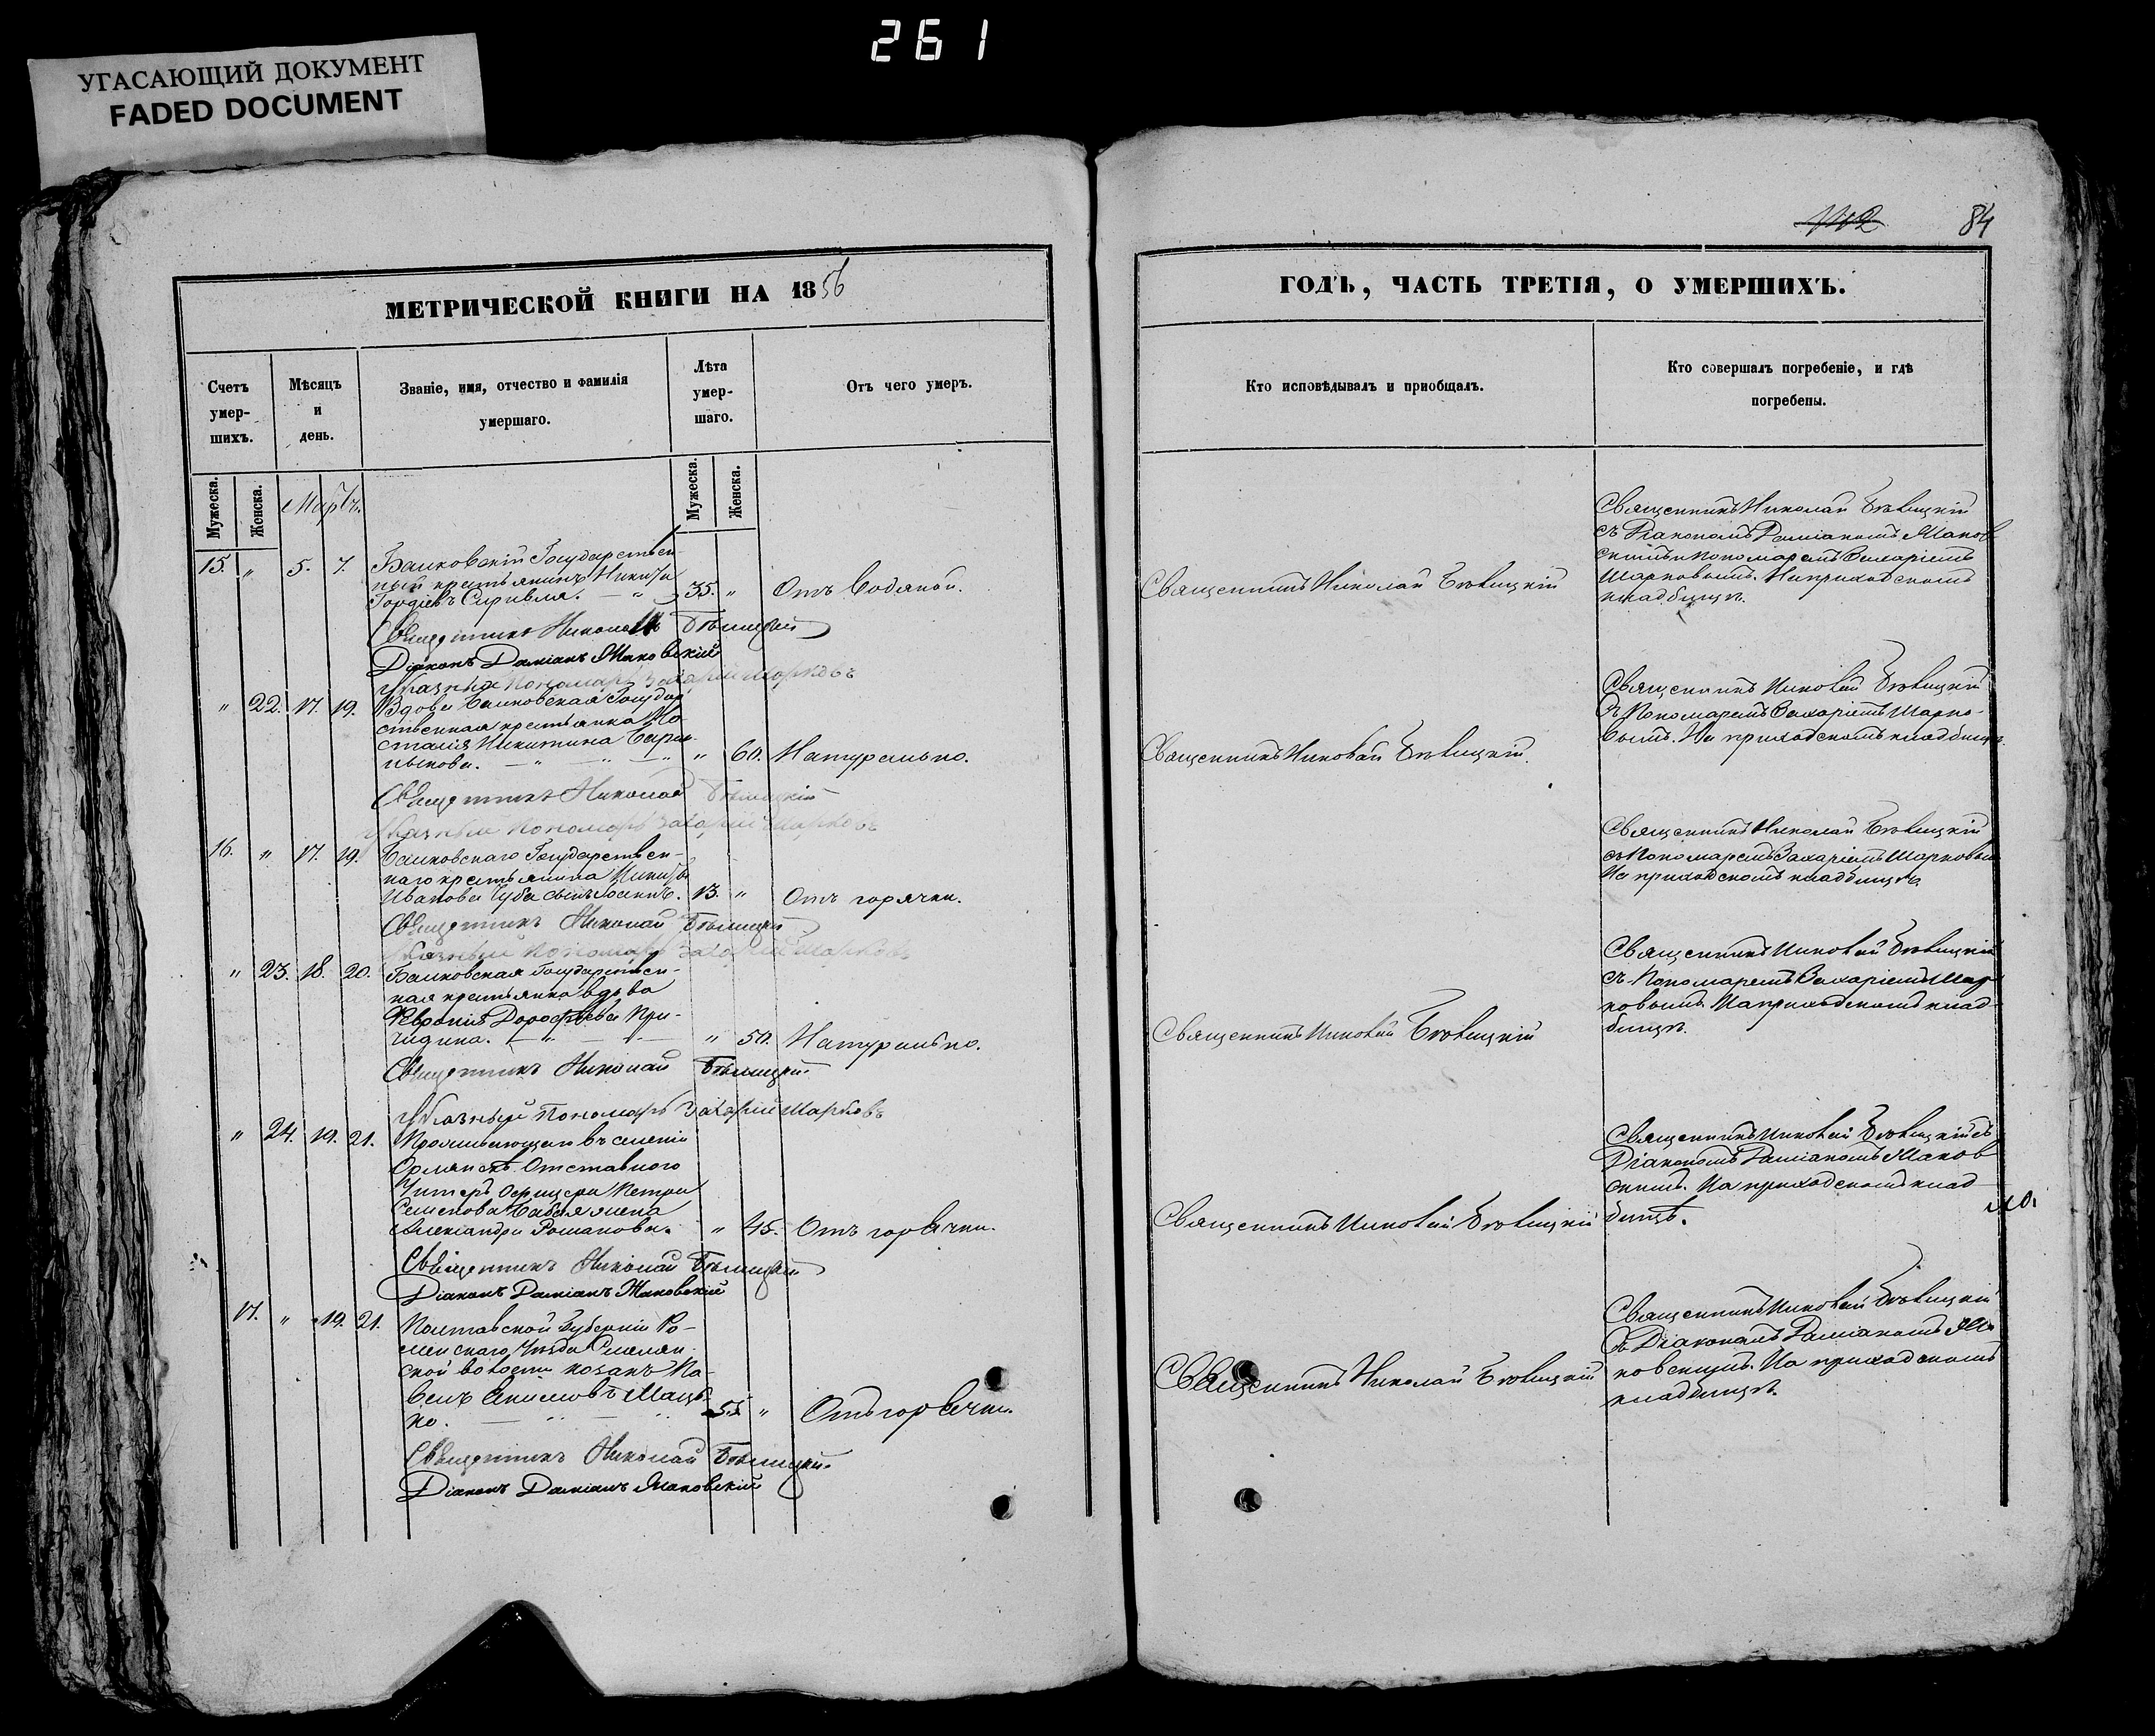 261
УГАСАЮЩИЙ ДОКУМЕНТ
FADED DOCUMENT
84
МЕТРИЧЕСКОЙ КНИГИ НА 1856
Счетъ умер-шихъ.
Мѣсяцъ и день.
Званіе, имя, отчество и фамилія умершаго.
Лѣта умер-шаго.
Отъ чего умеръ.
Мужеска.
Женска.
Мартъ.
Мужеска.
Женска.
15. " 5. 7. Балковскій Государствен-
ный крестьянинъ Никита
Гордіевъ 35. " Отъ водяной.
Священникъ Николай Бѣлицкій
Діаконъ Даміанъ Маковскій
Указный Пономарь Захарій Шарковъ
" 22. 17. 19. Вдова Балковская Государ-
ственная крестьянка
Никитина
" 60. Натурально.
Священникъ Николай Бѣлицкій
Указный Пономарь Захарій Шарковъ
16. " 17. 19. Балковскаго Государствен-
наго крестьянина Никиты
Иванова Чуба сынъ 13. " Отъ горячки.
Священникъ Николай Бѣлицкій
Указный Пономарь Захарій Шарковъ
" 23. 18. 20. Балковская Государствен-
ная крестьянка вдова
Дорофѣева
" 50. Натурально.
Священникъ Николай Бѣлицкій
Указный Пономарь Захарій Шарковъ
" 24. 19. 21. Проживающаго въ
Отставного
Унтеръ Офицера Петра
Семенова жена
Александра Романова. " 45. Отъ горячки.
Священникъ Николай Бѣлицкій
Діаконъ Даміанъ Маковскій
17. " 19. 21. Полтавской Губерніи Ро-
менскаго Уѣзда
ской волости козакъ Па-
велъ
55 " Отъ горячки.
Священникъ Николай Бѣлицкій
Діаконъ Даміанъ Маковскій
ГОДЪ, ЧАСТЬ ТРЕТІЯ, О УМЕРШИХЪ.
Кто исповѣдывалъ и приобщалъ.
Кто совершалъ погребеніе, и гдѣ погребены.
Священникъ Николай Бѣлицкій
Священникъ Николай Бѣлицкій
съ Діакономъ Даміаномъ Маков-
скимъ и Пономаремъ Захаріемъ
Шарковымъ. На приходскомъ
кладбищѣ.
Священникъ Николай Бѣлицкій.
Священникъ Николай Бѣлицкій
съ Пономаремъ Захаріемъ Шарко-
вымъ. На приходскомъ кладбищѣ.
Священникъ Николай Бѣлицкій
съ Пономаремъ Захаріемъ Шарковым
На приходскомъ кладбищѣ.
Священникъ Николай Бѣлицкій
Священникъ Николай Бѣлицкій
съ Пономаремъ Захаріемъ Шар-
ковымъ. На приходскомъ клад-
бищѣ.
Священникъ Николай Бѣлицкій
Священникъ Николай Бѣлицкій съ
Діакономъ Даміаномъ Маков-
скимъ. На приходскомъ клад-
бищѣ.
Священникъ Николай Бѣлицкій
Священникъ Николай Бѣлицкій
съ Діакономъ Даміаномъ Ма-
ковскимъ. На приходскомъ
кладбищѣ.